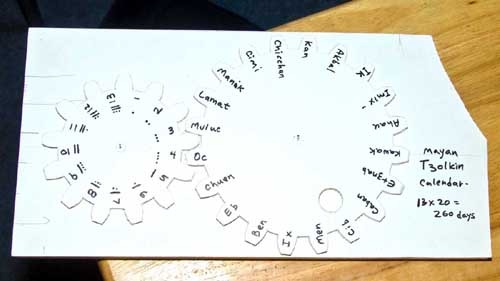 1
2
3
4
5
6
7
8
9
10
11
12
13
Imix
Ik
Akbal
Kan
Chicchan
Cimi
Manik
Lamat
Muluc
Oc
Chuen
Eb
Ben
Ix
Men
Cib
Caban
Etznab
Kawak
Ahau
Mayan
Tzolkin
Calendar-
13 x 20 =
260 days